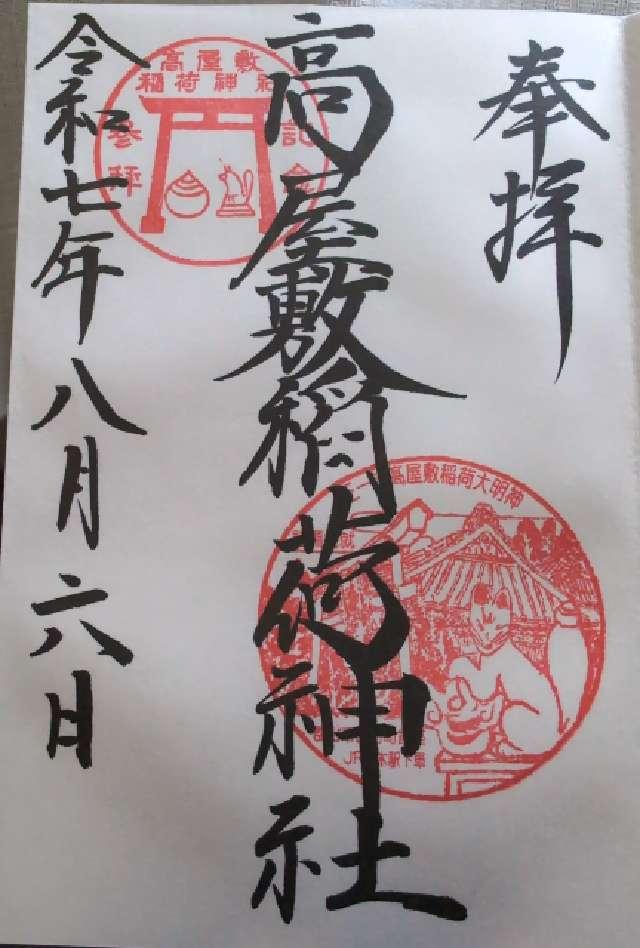 奉拝
高屋敷稲荷神社
令和七年八月六日
高屋敷
稲荷神社
参拝
記念
高屋敷稲荷大明神